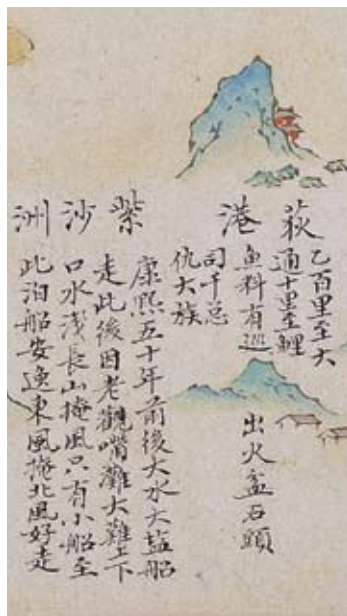 荻港
乙百里至大
通十里至鯉
魚料有巡
司千总
仇大族
出火盆石頭
紫沙洲
康熙五十年前後大水大盐船
走此後因老觀嘴灘大難上下
口水浅長山掩風只有小船至
此泊船安逸東風掩北風好走